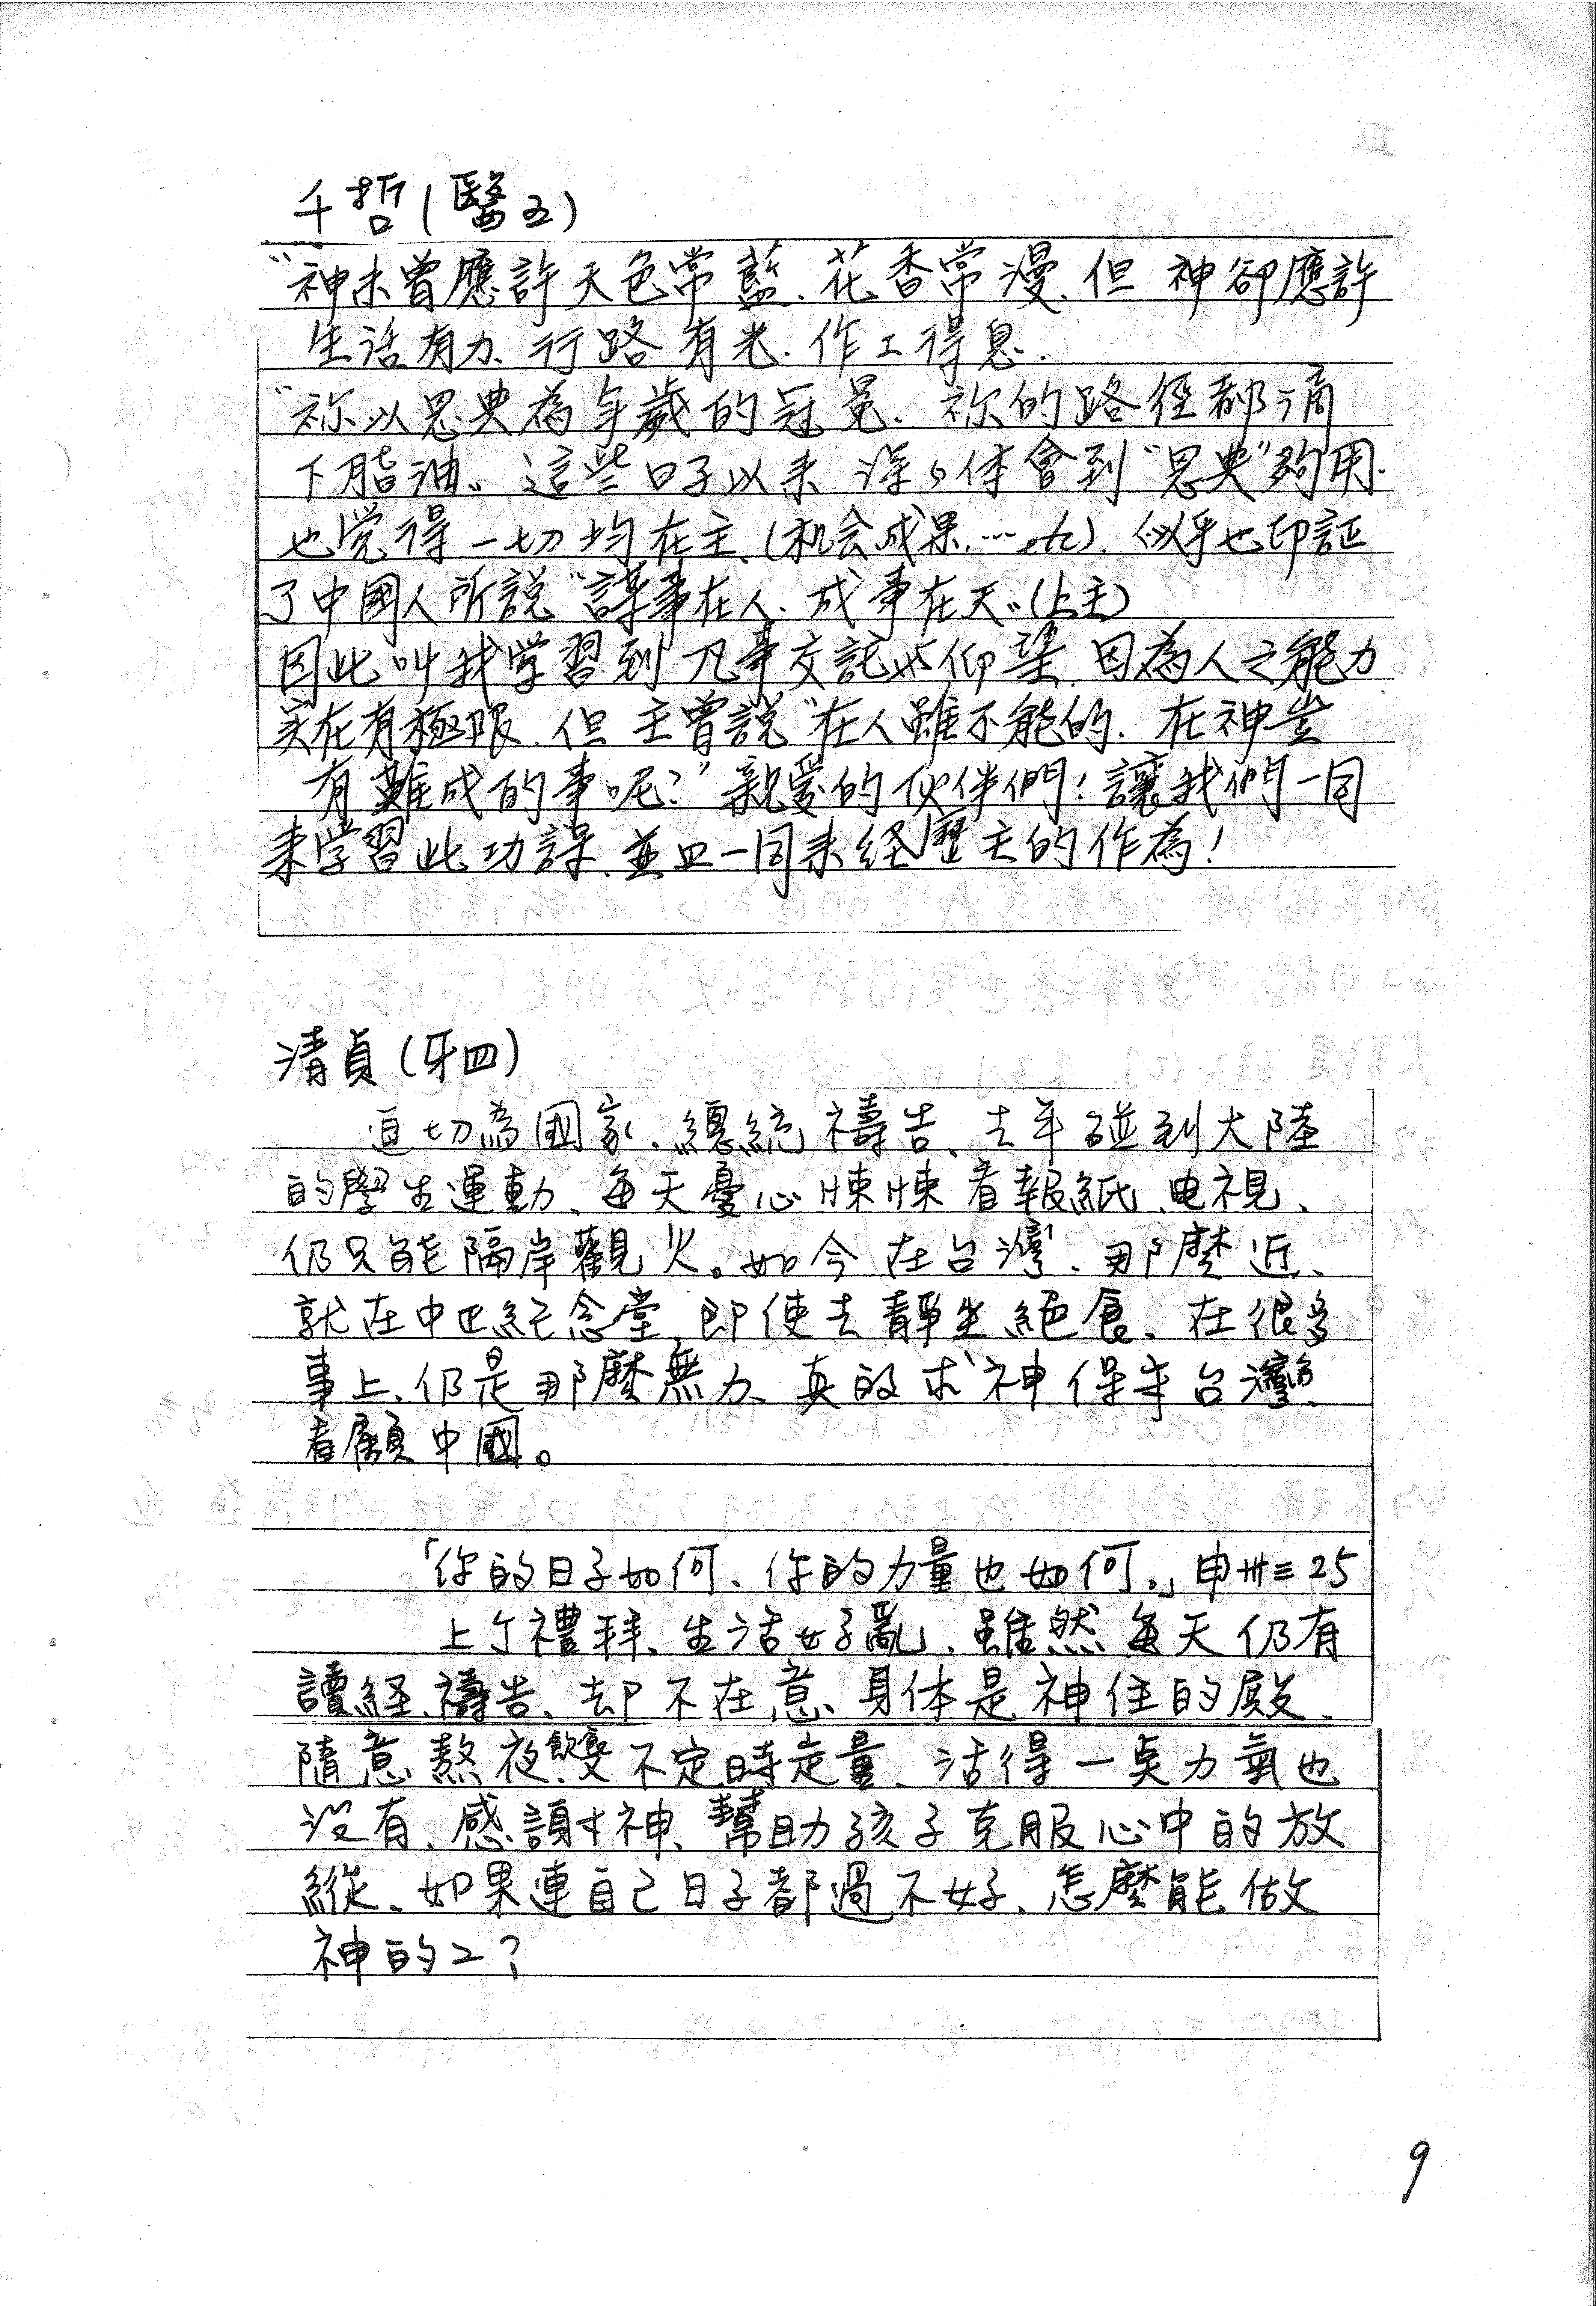 千哲(醫五)
“神未曾應許天色常藍、花香常漫、但 神卻應許
生活有力、行路有光、作工得息.
“祢以恩典為年歲的冠冕、祢的路徑都滴
下脂油”。這些日子以來 深深体會到“恩典”夠用.
也覚得一切均在主、(机会成果.…etc). 似乎也印証
了中國人所說“謀事在人、成事在天”。(上主)
因此叫我学習到凡事交託与仰望, 因為人之能力
实在有極限、但 主曾說“在人雖不能的、在神豈
有難成的事呢?” 親愛的伙伴們! 讓我們一同
来学習此功課、並且一同来経歷主的作為!
清貞(牙四)
迫切為國家、總統禱告、去年碰到大陸
的學生運動、每天憂心悚悚看報紙、电視、
仍只能隔岸觀火。如今在台灣、那麼近、
就在中正紀念堂、即使去靜坐絕食、在很多
事上、仍是那麼無力、真的求神保守台灣、
看顧中國。
「你的日子如何、你的力量也如何。」申卅三25
上了禮拜、生活好亂、雖然每天仍有
讀経、禱告、却不在意、身体是神住的殿、
隨意熬夜、飲食不定時定量、活得一点力氣也
没有、感謝神、幫助孩子克服心中的放
縱、如果連自己日子都過不好、怎麼能做
神的工?
9